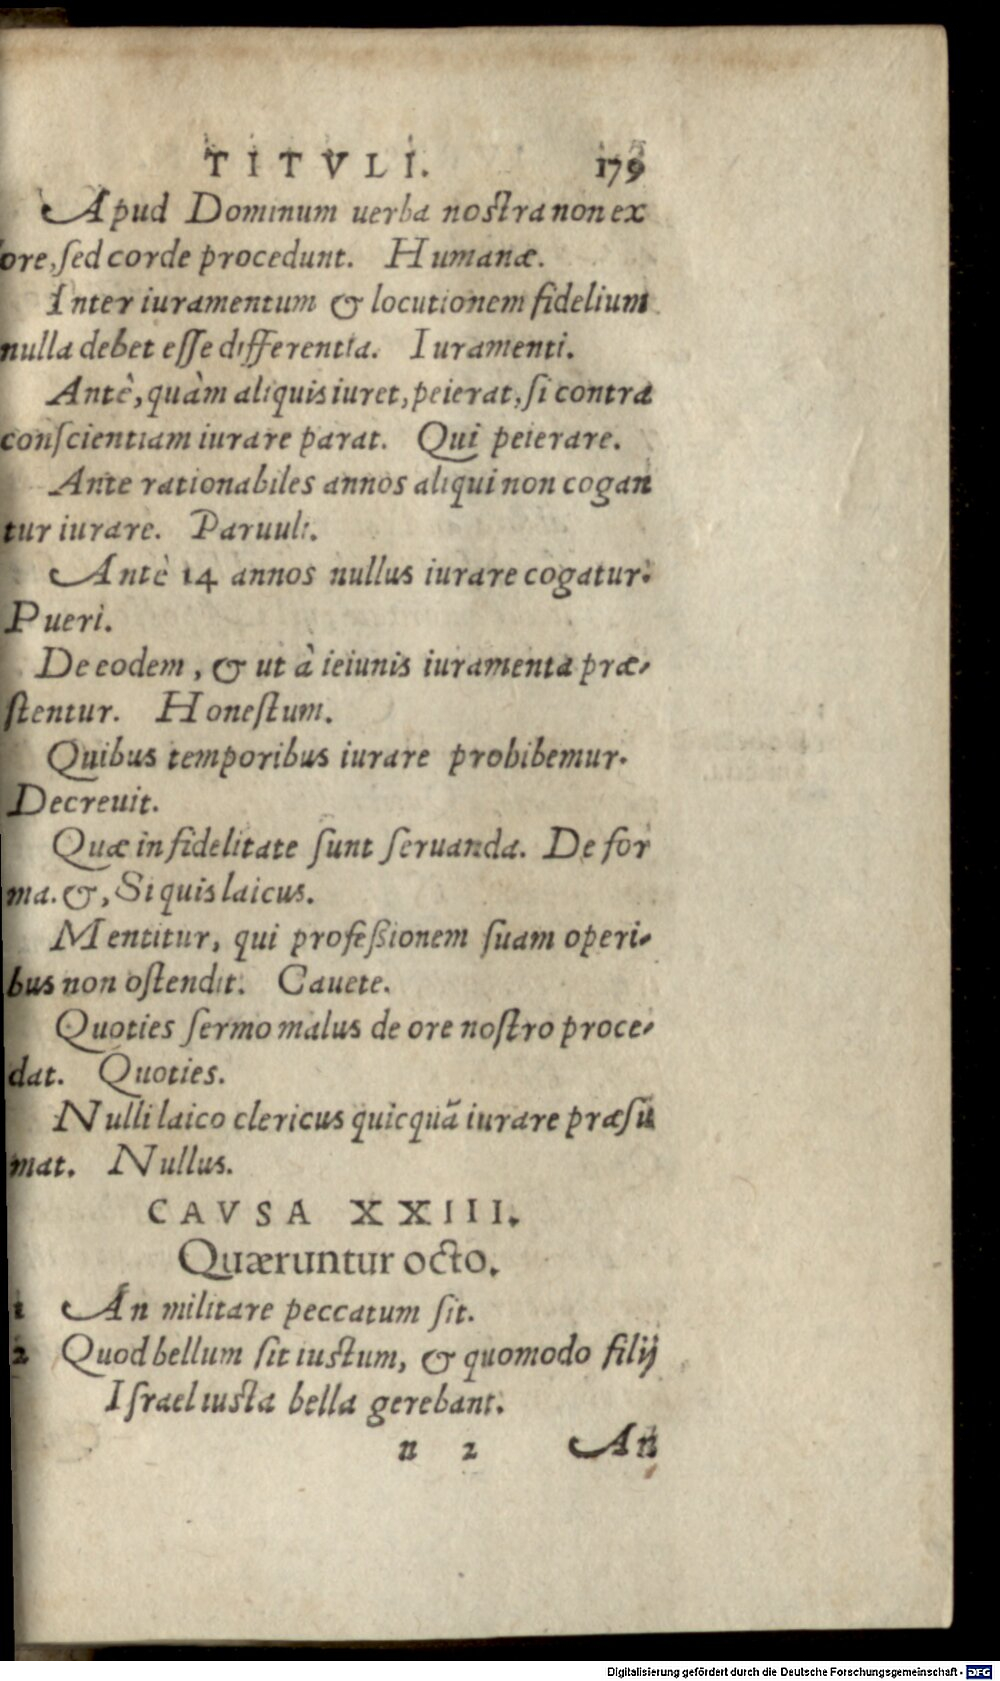 TITVLI. 179
Apud Dominum uerba nostra non ex
ore, sed corde procedunt. Humanæ.
Inter iuramentum & locutionem fidelium
nulla debet esse differentia. Iuramenti.
Antè, quàm aliquis iuret, peierat, si contra
conscientiam iurare parat. Qui peierare.
Ante rationabiles annos aliqui non cogan
tur iurare. Paruuli.
Antè 14 annos nullus iurare cogatur.
Pueri.
De eodem, & ut à ieiunis iuramenta præ-
stentur. Honestum.
Quibus temporibus iurare prohibemur.
Decreuit.
Quæ in fidelitate sunt seruanda. De for
ma. &, Si quis laicus.
Mentitur, qui professionem suam operi-
bus non ostendit. Cauete.
Quoties sermo malus de ore nostro proce-
dat. Quoties.
Nulli laico clericus quicquã iurare præsu
mat. Nullus.
CAVSA XXIII.
Quæruntur octo.
1 An militare peccatum sit.
2 Quod bellum sit iustum, & quomodo filij
Israel iusta bella gerebant.
n 2 An
Digitalisierung gefördert durch die Deutsche Forschungsgemeinschaft - DFG